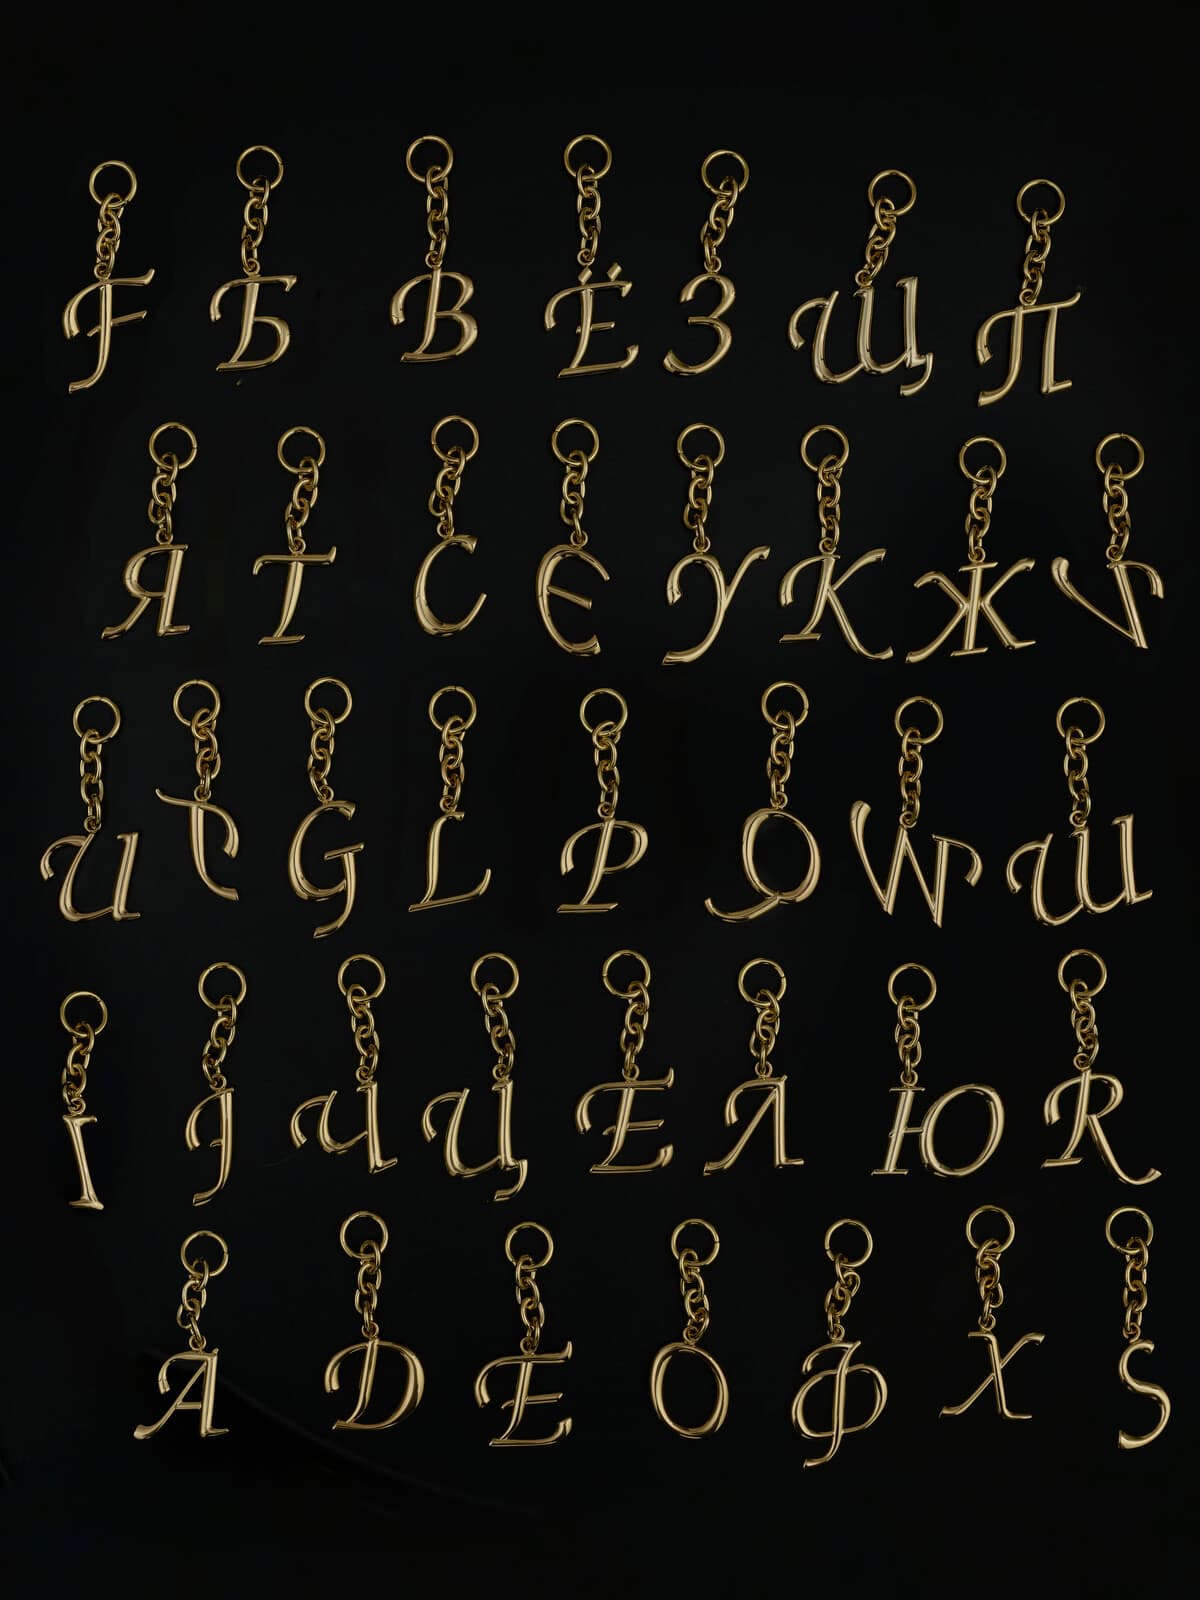 F Б В Ё З Щ П
Я Т С Є У К Ж V
И G L P Q W Ш
I J Ч Ц E Л Ю R
A D E O Ф X S